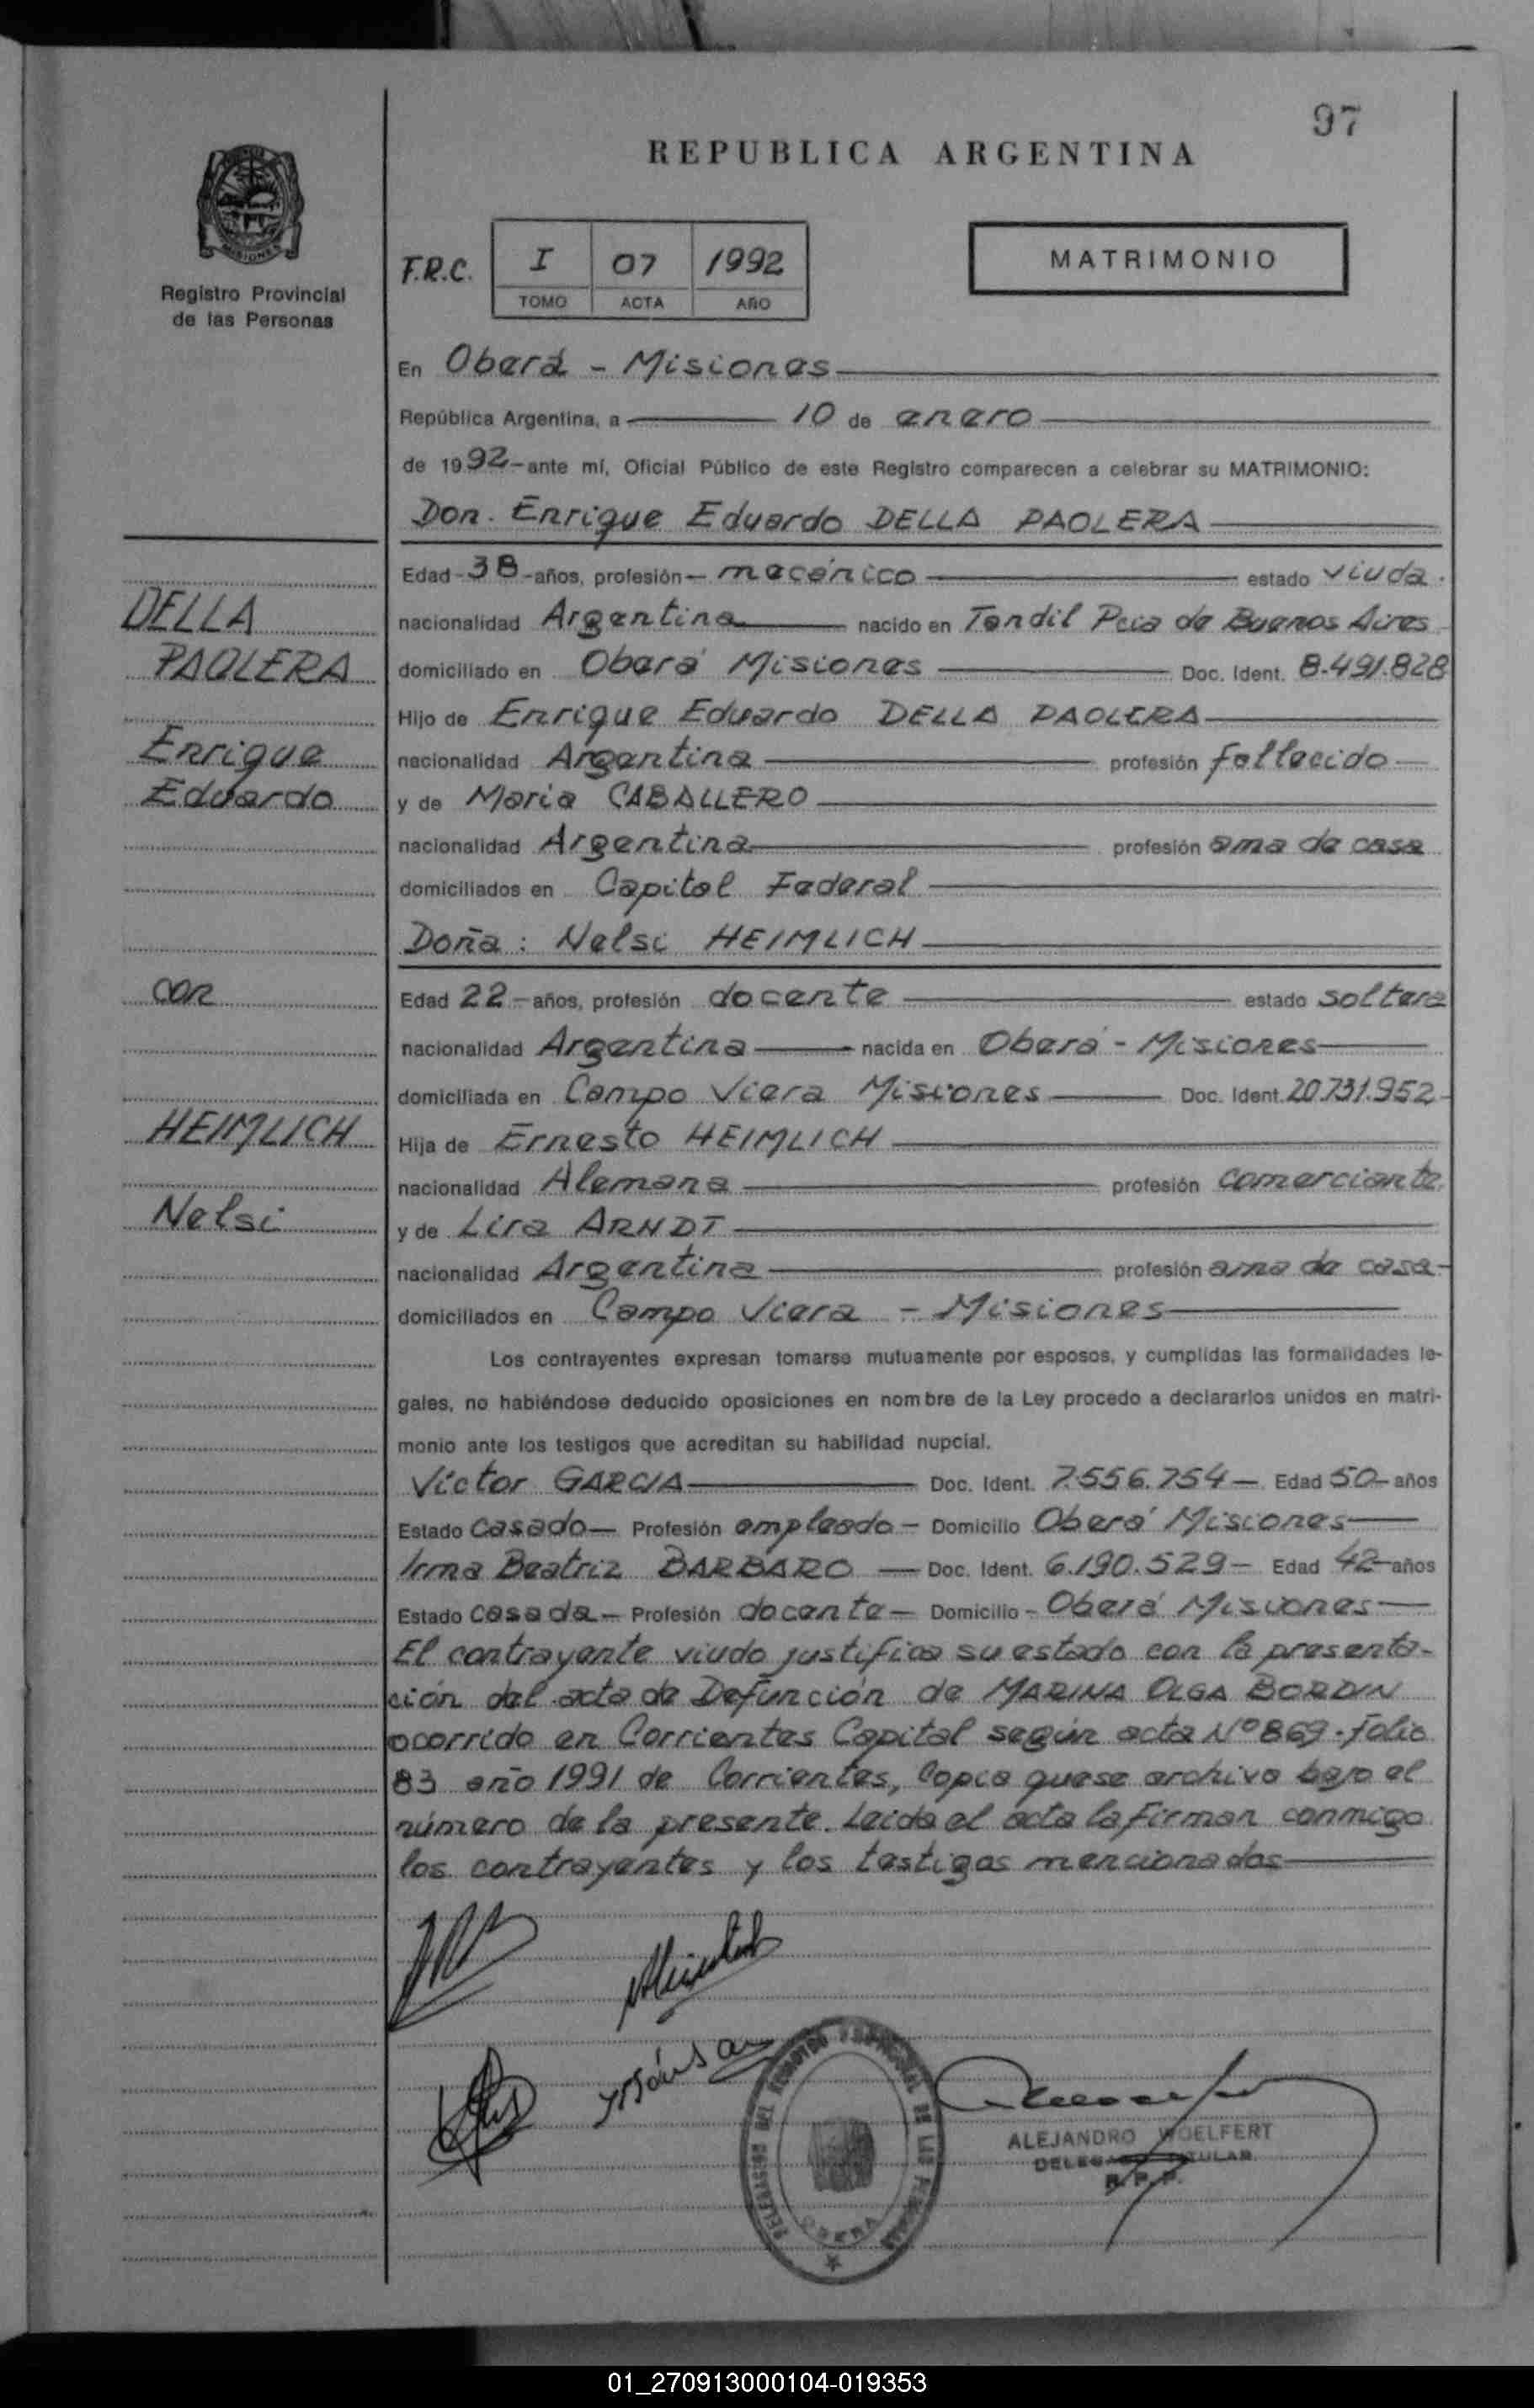 97
REPUBLICA ARGENTINA
MISIONES
Registro Provincial
de las Personas
F.R.C. I 07 1992
TOMO ACTA AÑO
MATRIMONIO
En Oberá - Misiones
República Argentina, a 10 de enero
de 1992- ante mí, Oficial Público de este Registro comparecen a celebrar su MATRIMONIO:
Don. Enrique Eduardo DELLA PAOLERA
DELLA
PAOLERA
Enrique
Eduardo
con
HEIMLICH
Nelsi
Edad - 38 - años, profesión - mecánico estado viuda.
nacionalidad Argentina nacido en Tandil Pcia de Buenos Aires
domiciliado en Oberá Misiones Doc. Ident. 8.491.828
Hijo de Enrique Eduardo DELLA PAOLERA
nacionalidad Argentina profesión fallecido
y de Maria CABALLERO
nacionalidad Argentina profesión ama de casa
domiciliados en Capital Federal
Doña: Nelsi HEIMLICH
Edad 22 - años, profesión docente estado soltera
nacionalidad Argentina nacida en Oberá - Misiones
domiciliada en Campo Viera Misiones Doc. Ident. 20.731.952
Hija de Ernesto HEIMLICH
nacionalidad Alemana profesión comerciante
y de Lira ARNDT
nacionalidad Argentina profesión ama de casa
domiciliados en Campo Viera - Misiones
Los contrayentes expresan tomarse mutuamente por esposos, y cumplidas las formalidades le-
gales, no habiéndose deducido oposiciones en nombre de la Ley procedo a declararlos unidos en matri-
monio ante los testigos que acreditan su habilidad nupcial.
Víctor GARCIA Doc. Ident. 7.556.754 - Edad 50 - años
Estado casado - Profesión empleado - Domicilio Oberá Misiones
Irma Beatriz BARBARO - Doc. Ident. 6.190.529 - Edad 42 - años
Estado casada - Profesión docente - Domicilio - Oberá Misiones
El contrayente viudo justifica su estado con la presenta-
ción del acta de Defunción de MARINA OLGA BORDIN
ocorrido en Corrientes Capital según acta Nº 869 - Folio
83 año 1991 de Corrientes, Copia quese archiva bajo el
número de la presente. Leida el acta la firman conmigo
los contrayentes y los testigos mencionados
OBERA
ALEJANDRO WOELFERT
DELEGADO TITULAR
R. P. P.
01_270913000104-019353